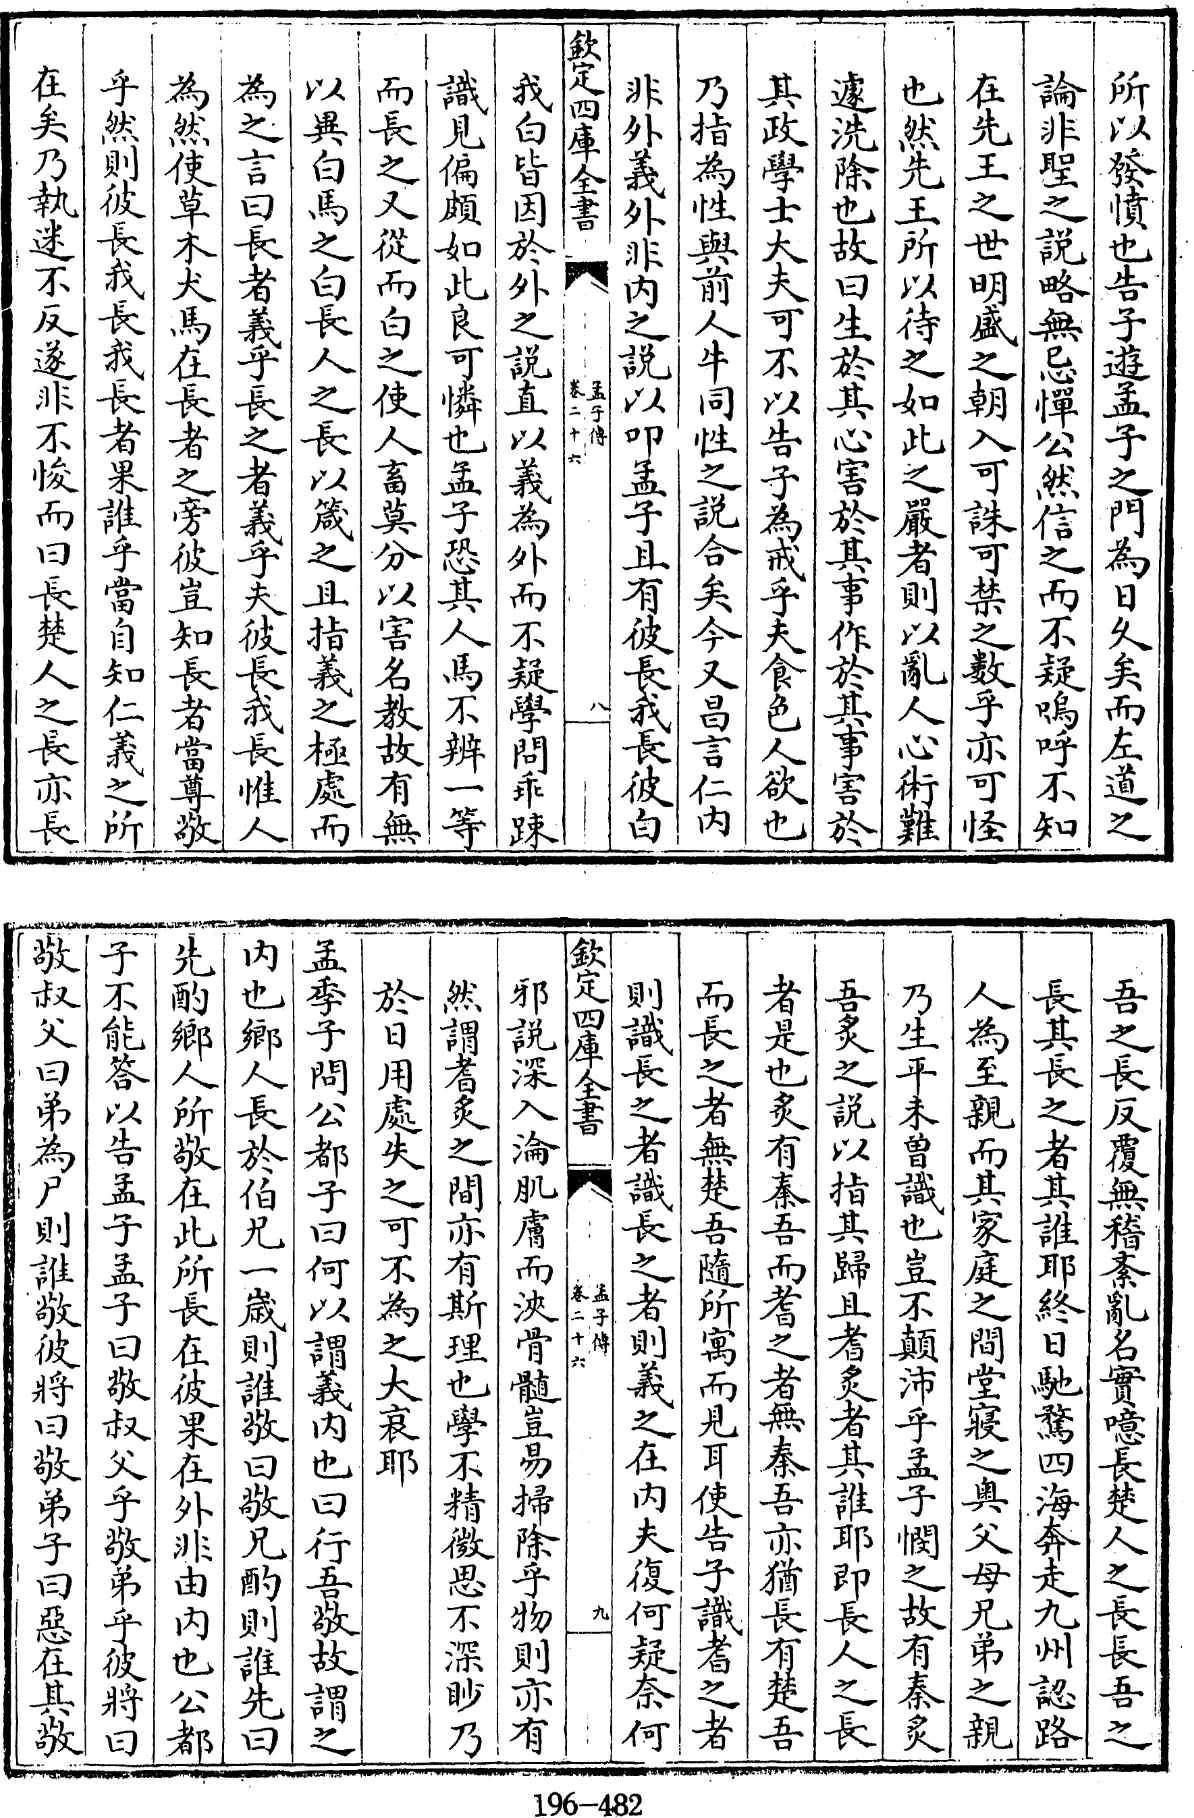 所以發憤也告子遊孟子之門為日久矣而左道之
論非聖之説略無忌憚公然信之而不疑嗚呼不知
在先王之世明盛之朝入可誅可禁之數乎亦可怪
也然先王所以待之如此之嚴者則以亂人心術難
遽洗除也故曰生於其心害於其事作於其事害於
其政學士大夫可不以告子為戒乎夫食色人欲也
乃指為性與前人牛同性之説合矣今又昌言仁内
非外義外非内之説以叩孟子且有彼長我長彼白
欽定四庫全書
孟子傳
卷二十六
八
我白皆因於外之説直以義為外而不疑學問乖踈
識見偏頗如此良可憐也孟子恐其人馬不辨一等
而長之又從而白之使人畜莫分以害名教故有無
以異白馬之白長人之長以箴之且指義之極處而
為之言曰長者義乎長之者義乎夫彼長我長惟人
為然使草木犬馬在長者之旁彼豈知長者當尊敬
乎然則彼長我長我長者果誰乎當自知仁義之所
在矣乃執迷不反遂非不悛而曰長楚人之長亦長
吾之長反覆無稽紊亂名實噫長楚人之長長吾之
長其長之者其誰耶終日馳騖四海奔走九州認路
人為至親而其家庭之間堂寝之奥父母兄弟之親
乃生平未曽識也豈不顛沛乎孟子憫之故有秦炙
吾炙之説以指其歸且耆炙者其誰耶即長人之長
者是也炙有秦吾而耆之者無秦吾亦猶長有楚吾
而長之者無楚吾隨所寓而見耳使告子識耆之者
則識長之者識長之者則義之在内夫復何疑奈何
欽定四庫全書
孟子傳
卷二十六
九
邪説深入淪肌膚而浹骨髓豈易掃除乎物則亦有
然謂耆炙之間亦有斯理也學不精微思不深眇乃
於日用處失之可不為之大哀耶
孟季子問公都子曰何以謂義内也曰行吾敬故謂之
内也鄉人長於伯兄一嵗則誰敬曰敬兄酌則誰先曰
先酌鄉人所敬在此所長在彼果在外非由内也公都
子不能答以告孟子孟子曰敬叔父乎敬弟乎彼將曰
敬叔父曰弟為尸則誰敬彼將曰敬弟子曰惡在其敬
196-482